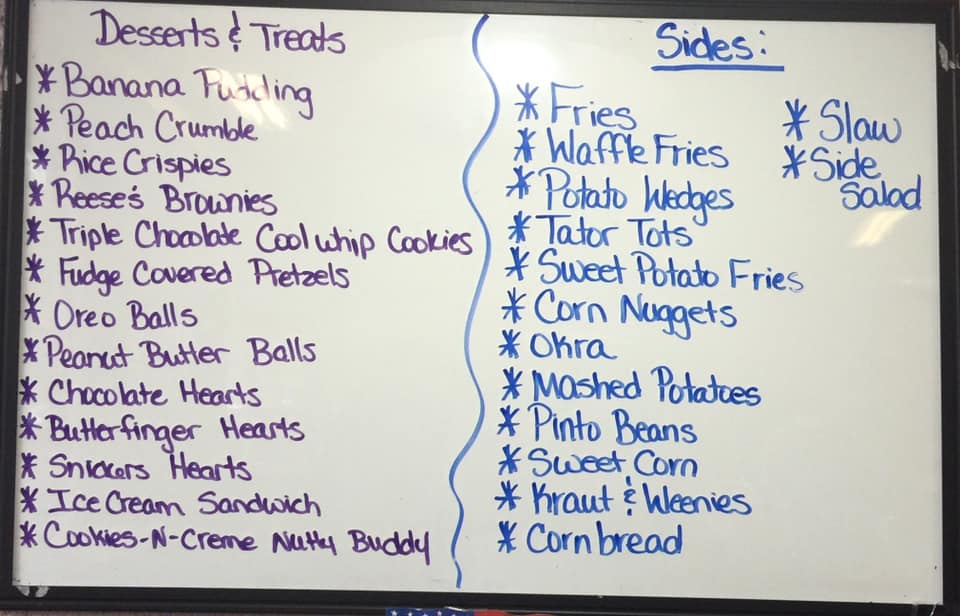 Desserts & Treats
* Banana Pudding
* Peach Crumble
* Rice Crispies
* Reese's Brownies
* Triple Chocolate Cool whip Cookies
* Fudge Covered Pretzels
* Oreo Balls
* Peanut Butter Balls
* Chocolate Hearts
* Butterfinger Hearts
* Snickers Hearts
* Ice Cream Sandwich
* Cookies-N-Creme Nutty Buddy
Sides:
* Fries
* Waffle Fries
* Potato Wedges
* Tator Tots
* Sweet Potato Fries
* Corn Nuggets
* Okra
* Mashed Potatoes
* Pinto Beans
* Sweet Corn
* Kraut & Weenies
* Cornbread
* Slaw
* Side
Salad